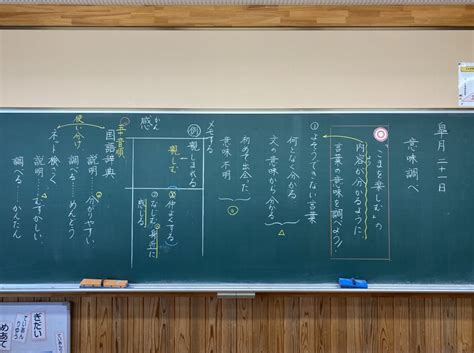 皐月二十一日
意味調べ
「こまを楽しむ」の
内容が分かるように
言葉の意味を調べよう！
①よそうできない言葉
何となく分かる
文の意味から分かる
初めて出会った
意味不明
メモする
例
親しまれる
親しむ
①仲よくする
②なじむ
身近に
感じる
感
かん
五十音順
国語辞典
説明……分かりやすい
調べる……めんどう
使い分け
ネット検さく
説明……むずかしい
調べる……かんたん
ぎだい
ていあん
りゆう
めあて